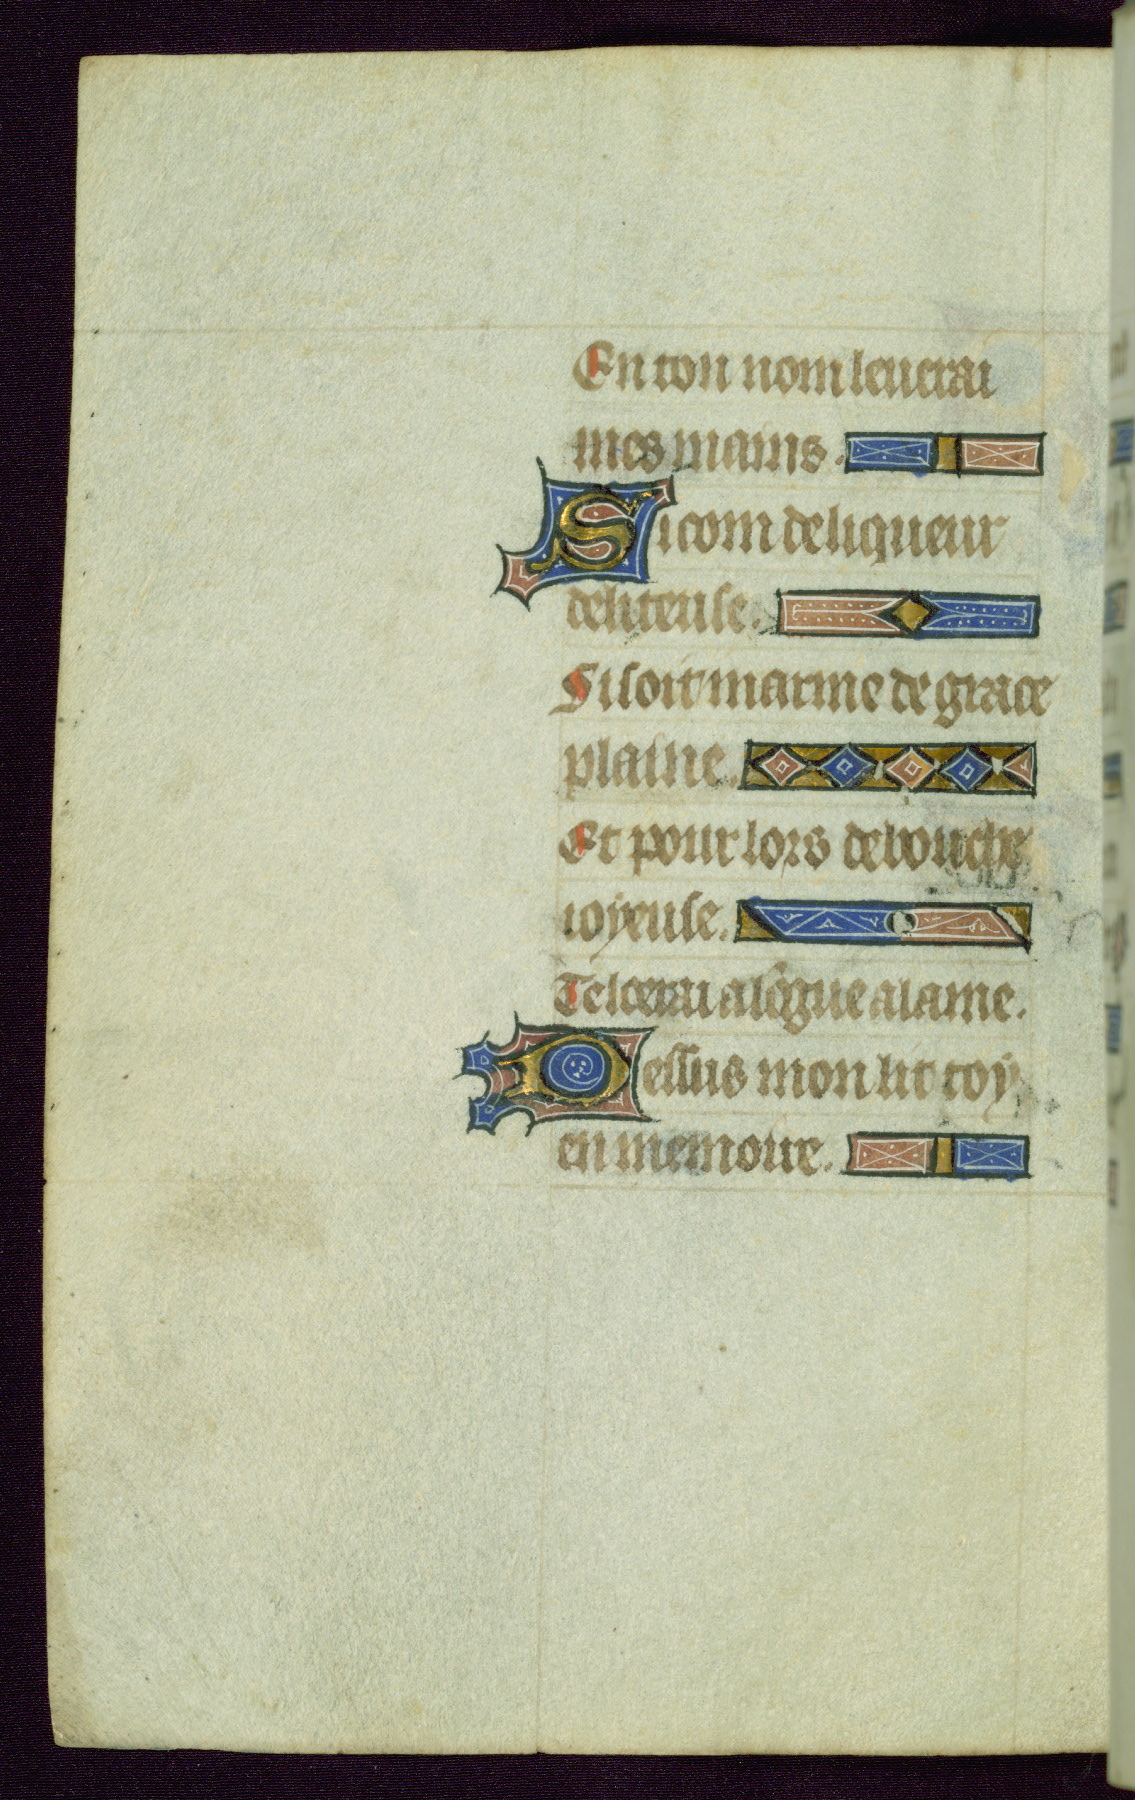 En ton nom leuerai
mes mains.
Si com de liqueur
deliteuse.
Si soit marme de grace
plaine.
Et pour lors de bouche
ioyeuse.
Te loerai a lõgue alaine.
Dessus mon lit toy
en memoire.